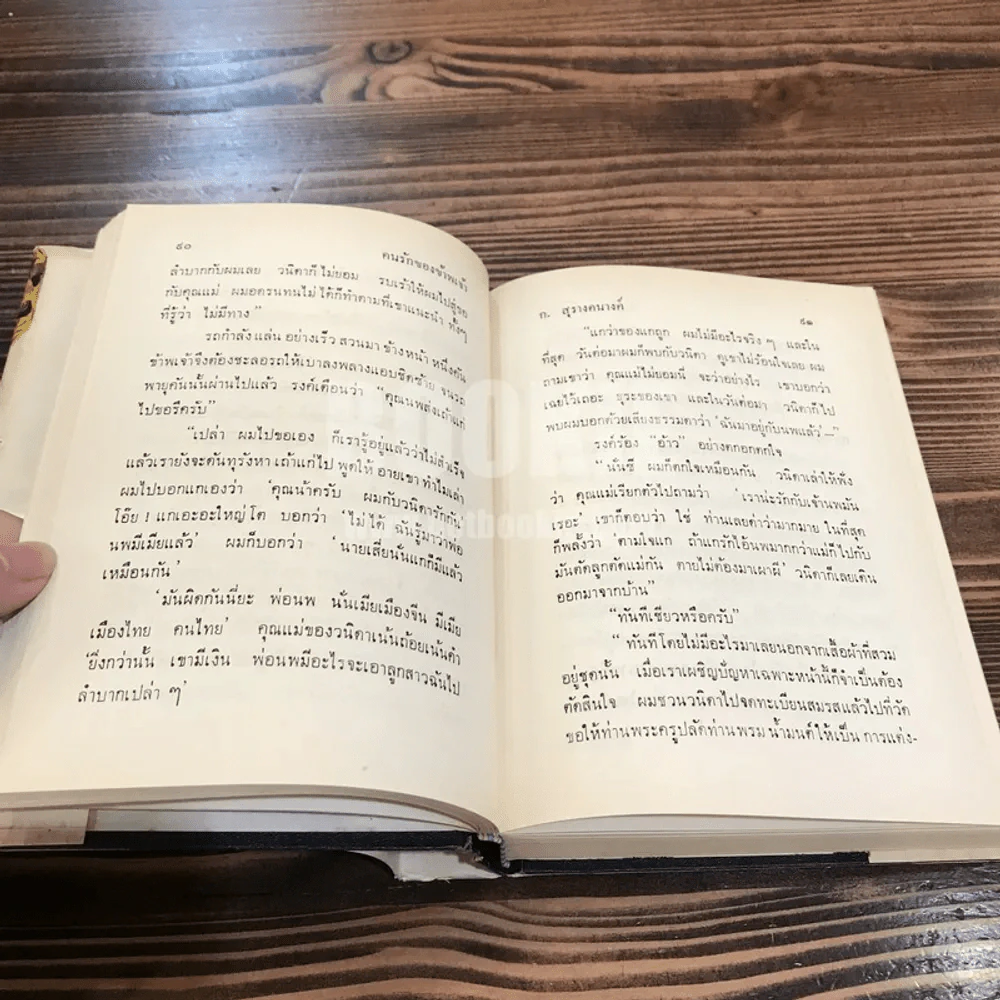 ๙๐
คนรักของข้าพเจ้า
ลำบากกับผมเลย วนิดาก็ไม่ยอม รบเร้าให้ผมไปสู่ขอ
กับคุณแม่ ผมอดรนทนไม่ได้ก็ทำตามที่เขาแนะนำ ทั้งๆ
ที่รู้ว่า ไม่มีทาง"
รถกำลังแล่นอย่างเร็ว สวนมาข้างหน้า หนึ่งคัน
ข้าพเจ้าจึงต้องชะลอรถให้เบาลงพลางแอบชิดซ้าย จนรถ
พายุคันนั้นผ่านไปแล้ว รงค์เตือนว่า "คุณนพส่งเถ้าแก่
ไปขอรึครับ"
"เปล่า ผมไปขอเอง ก็เรารู้อยู่แล้วว่าไม่สำเร็จ
แล้วเรายังจะดันทุรังหา เถ้าแก่ไป พูดให้ อายเขา ทำไมเล่า
ผมไปบอกแกเองว่า 'คุณน้าครับ ผมกับวนิดารักกัน'
โอ๊ย ! แกเอะอะใหญ่โต บอกว่า 'ไม่ได้ ฉันรู้มาว่าพ่อ
นพมีเมียแล้ว' ผมก็บอกว่า 'นายเสี่ยนั่นแกก็มีแล้ว
เหมือนกัน'
'มันผิดกันนี่ยะ พ่อนพ นั่นเมียเมืองจีน มีเมีย
เมืองไทย คนไทย' คุณแม่ของวนิดาเน้นถ้อยเน้นคำ
'ยิ่งกว่านั้น เขามีเงิน พ่อนพมีอะไรจะเอาลูกสาวฉันไป
ลำบากเปล่า ๆ'
ก. สุรางคนางค์
๙๑
"แกว่าของแกถูก ผมไม่มีอะไรจริง ๆ และใน
ที่สุด วันต่อมาผมก็พบกับวนิดา ดูเขาไม่ร้อนใจเลย ผม
ถามเขาว่า คุณแม่ไม่ยอมนี่ จะว่าอย่างไร เขาบอกว่า
เฉยไว้เถอะ ธุระของเขา และในวันต่อมา วนิดาก็ไป
พบผมบอกด้วยเสียงธรรมดาว่า 'ฉันมาอยู่กับนพแล้ว'—"
รงค์ร้อง "อ้าว" อย่างตกอกตกใจ
"นั่นซี ผมก็ตกใจเหมือนกัน วนิดาเล่าให้ฟัง
ว่า คุณแม่เรียกตัวไปถามว่า 'เราน่ะรักกับเจ้านพมัน
เรอะ' เขาก็ตอบว่า ใช่ ท่านเลยด่าว่ามากมาย ในที่สุด
ก็พลั้งว่า 'ตามใจแก ถ้าแกรักไอ้นพมากกว่าแม่ก็ไปกับ
มันตัดลูกตัดแม่กัน ตายไม่ต้องมาเผาผี' วนิดาก็เลยเดิน
ออกมาจากบ้าน"
"ทันทีเชียวหรือครับ"
"ทันทีโดยไม่มีอะไรมาเลยนอกจากเสื้อผ้าที่สวม
อยู่ชุดนั้น เมื่อเราเผชิญปัญหาเฉพาะหน้านี้ก็จำเป็นต้อง
ตัดสินใจ ผมชวนวนิดาไปจดทะเบียนสมรสแล้วไปที่วัด
ขอให้ท่านพระครูปลัดท่านพรม น้ำมนต์ให้เป็น การแต่ง-